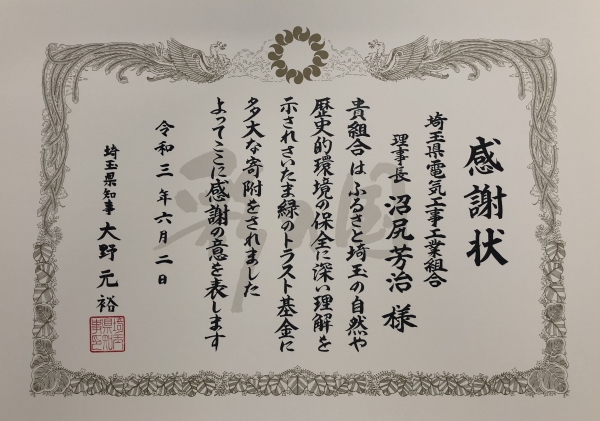 感謝状
埼玉県電気工事工業組合
理事長 沼尻芳治 様
貴組合はふるさと埼玉の自然や
歴史的環境の保全に深い理解を
示されさいたま緑のトラスト基金に
多大な寄附をされました
よってここに感謝の意を表します
令和三年六月二日
埼玉県知事 大野元裕
彩の国